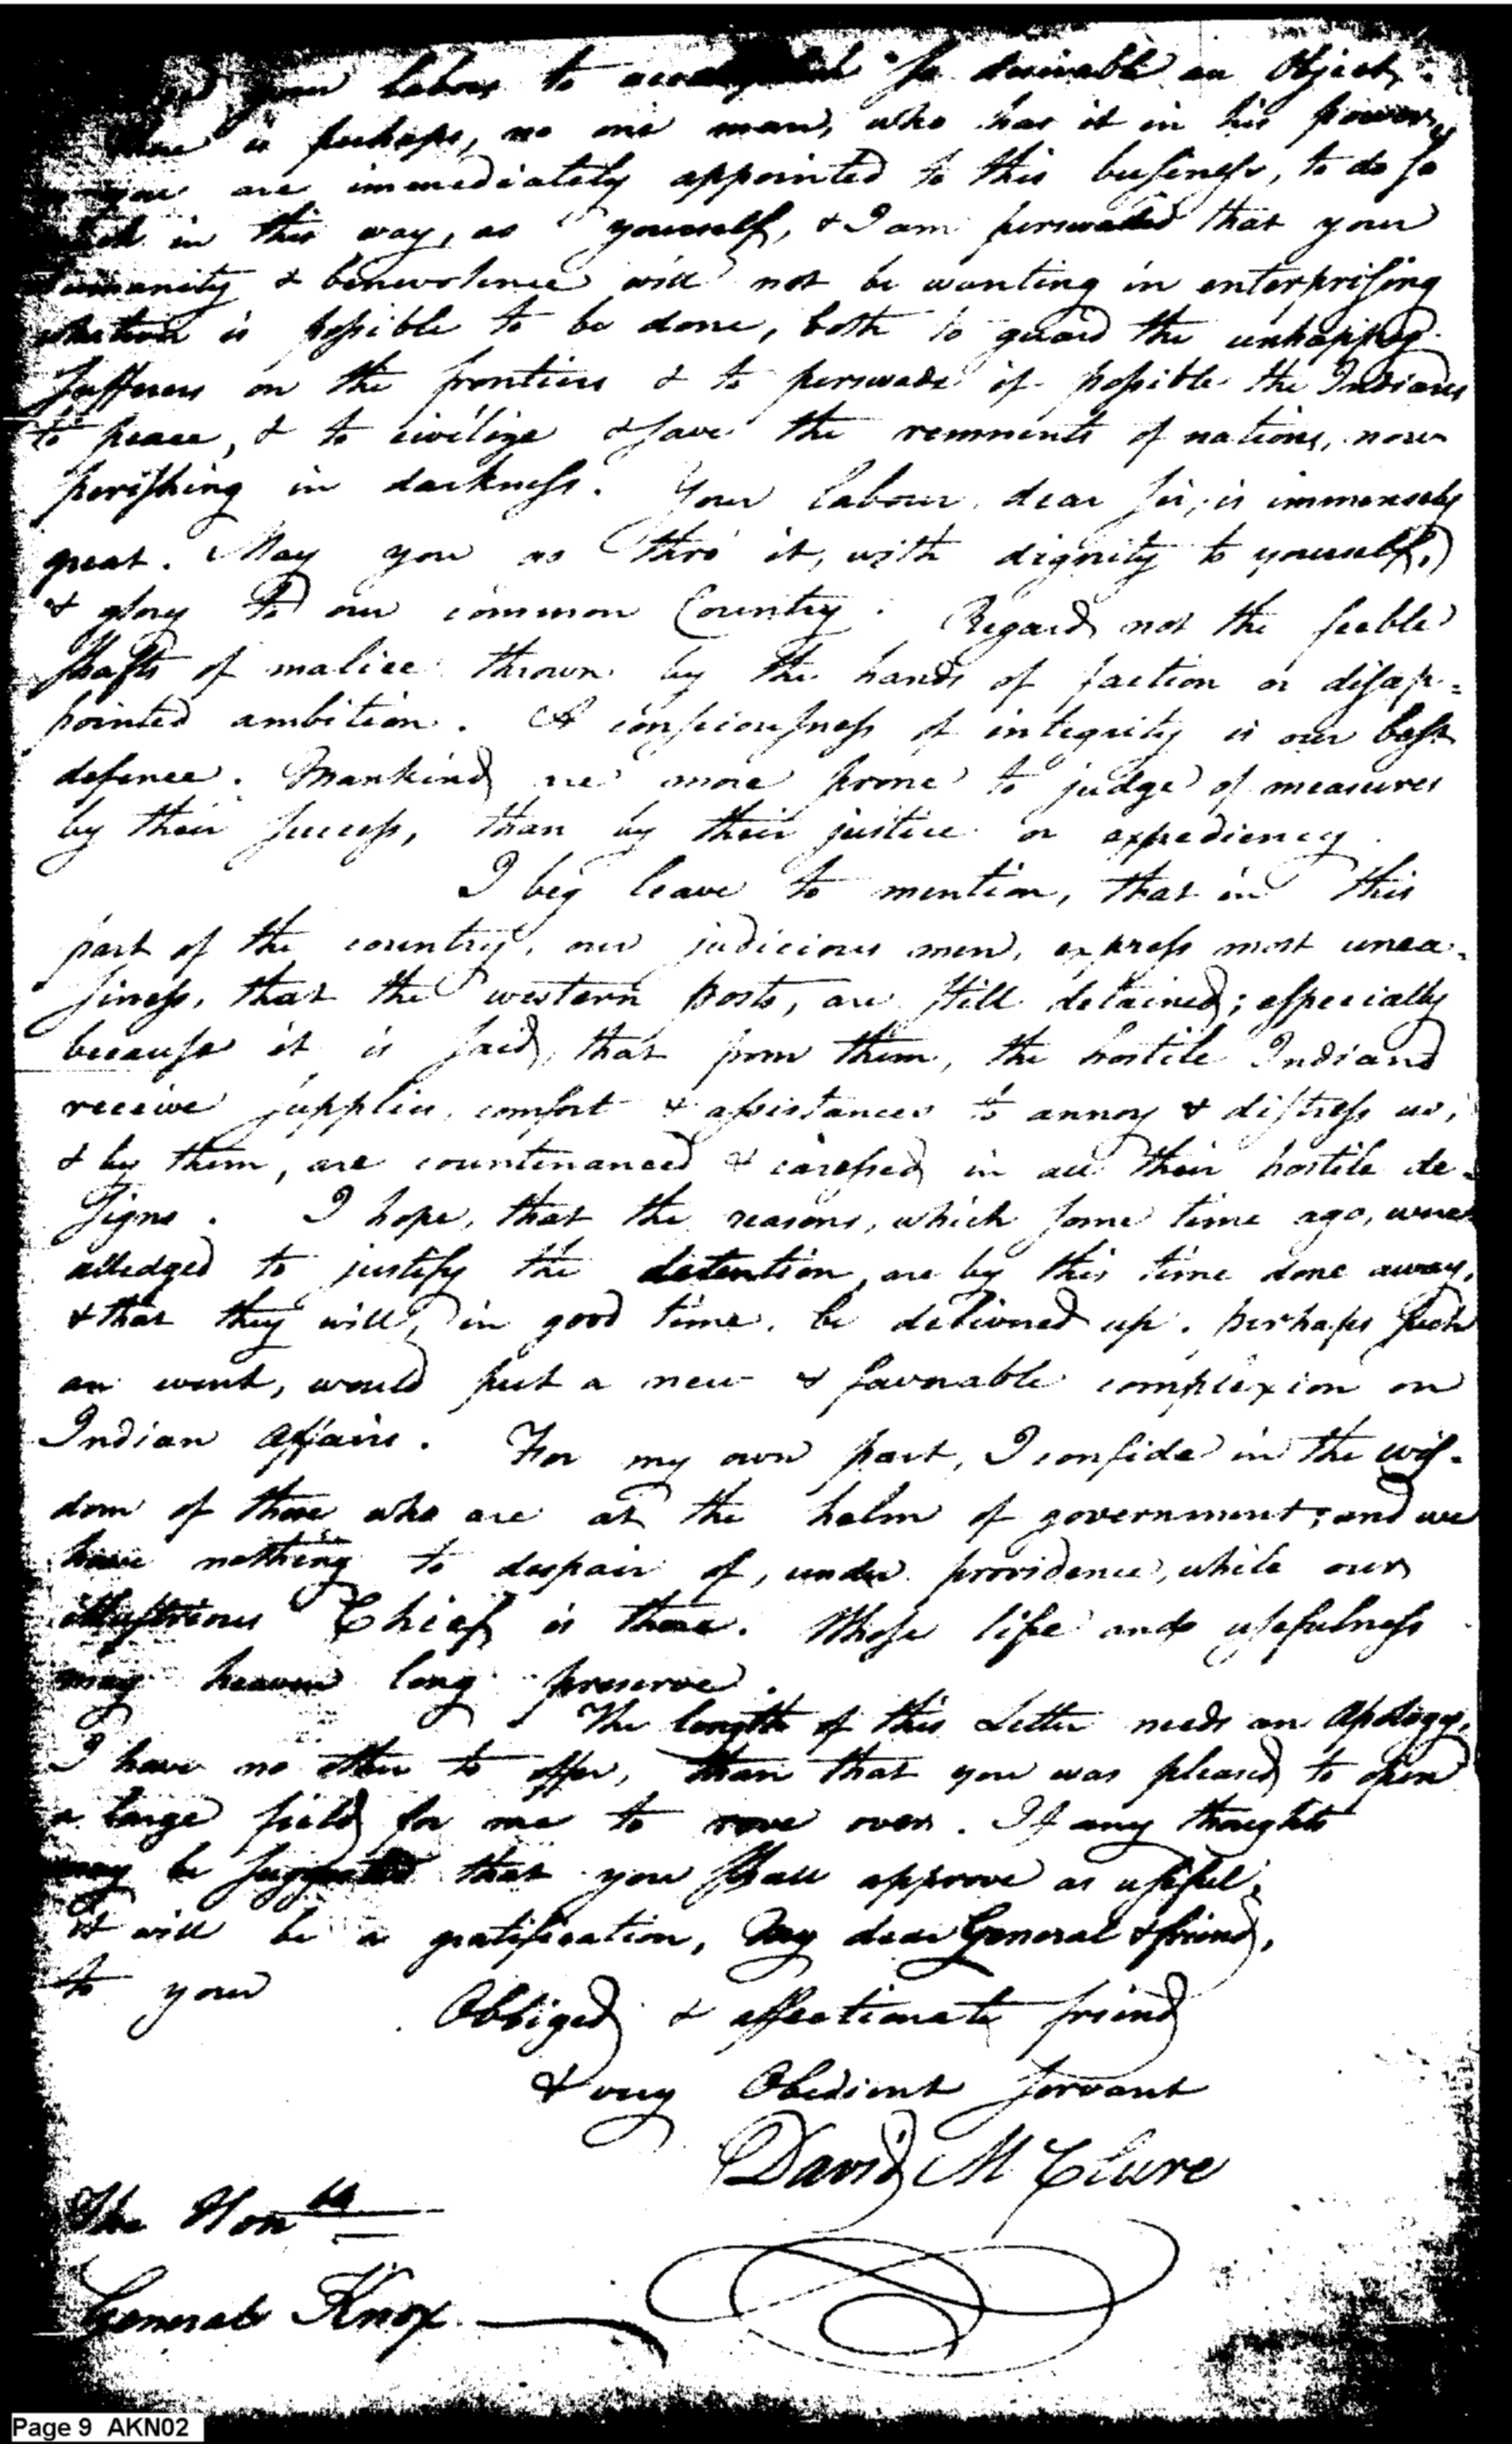 your labors to accomplish so desirable an Object.
There is perhaps, no one man, who has it in his power,
you are immediately appointed to this business, to do so
much in this way, as yourself, & I am perswaded that your
humanity & benevolence will not be wanting in enterprising
whatever is possible to be done, both to guard the unhappy
sufferers on the frontiers & to perswade if possible the Indians
to peace, & to civilize & save the remnents of nations, now
perishing in darkness. Your labour, dear Sir, is immensely
great. May you go thro' it, with dignity to yourself,
& glory to our common Country. Regard not the feeble
shafts of malice thrown by the hands of faction or disap=
pointed ambition. A consciousness of integrity is our best
defence. Mankind are more prone to judge of measures
by their success, than by their justice or expediency.
I beg leave to mention, that in this
part of the country, our judicious men, express most unea-
siness, that the western posts, are still detained; especially
because it is said, that from them, the hostile Indians
receive supplies, comfort & assistances to annoy & distress us,
& by them, are countenanced & caressed in all their hostile de=
signs. I hope, that the reasons, which some time ago, were
alledged to justify the detention, are by this time done away,
& that they will, in good time, be delivered up. perhaps such
an event, would put a new & favorable complexion on
Indian affairs. For my own part, I confide in the wis-
dom of those who are at the helm of government; and we
have nothing to despair of, under providence, while our
illustrious Chief is there. Whose life and usefulness
may heaven long preserve.
The length of this Letter needs an Apology,
I have no other to offer, than that you was pleased to open
a large field for me to rove over. If any thoughts
may be suggested that you shall approve as useful,
it will be a gratification, My dear General & friend,
to your
Obliged & affectionate friend
& very Obedient servant
David McClure
The Honble
General Knox.
Page 9 AKN02